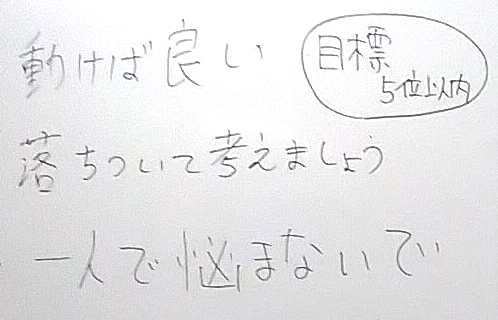 動けば良い
目標
5位以内
落ちついて考えましょう
一人で悩まないで